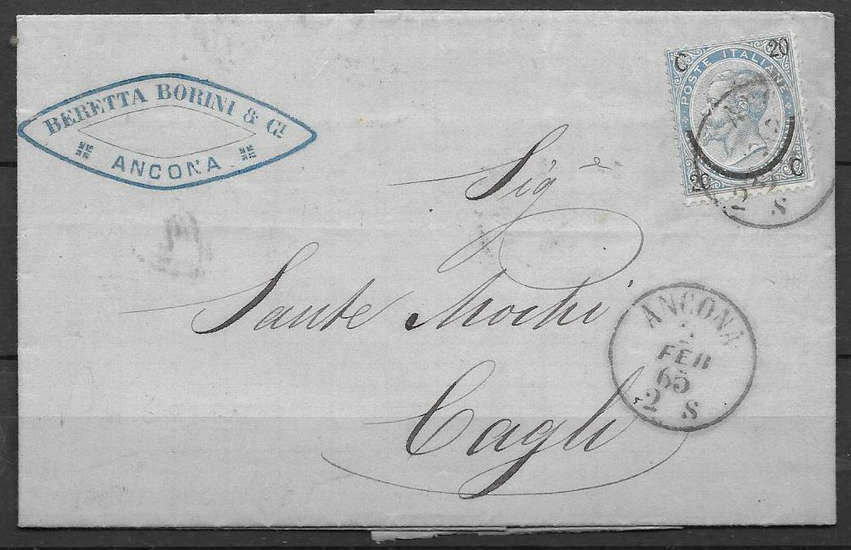 BERETTA BORINI & Cⁱ
ANCONA
C 20
POSTE ITALIANE
20 C
2 S
Sigʳᵉ
Sante Mochi
Cagli
ANCONA
2
FEB
65
2 S